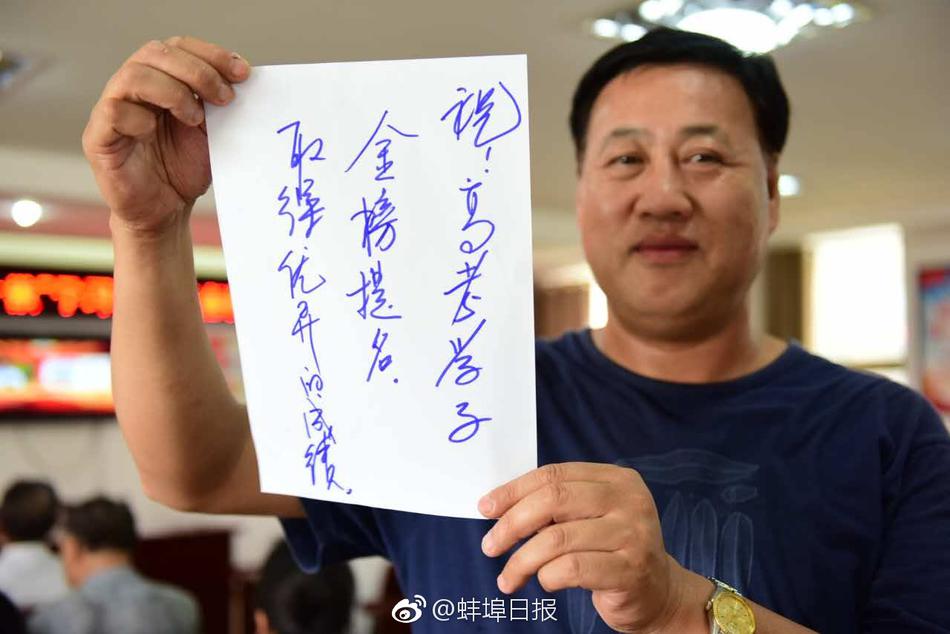 祝！高考学子
金榜提名．
取得优异的成绩．
@蚌埠日报